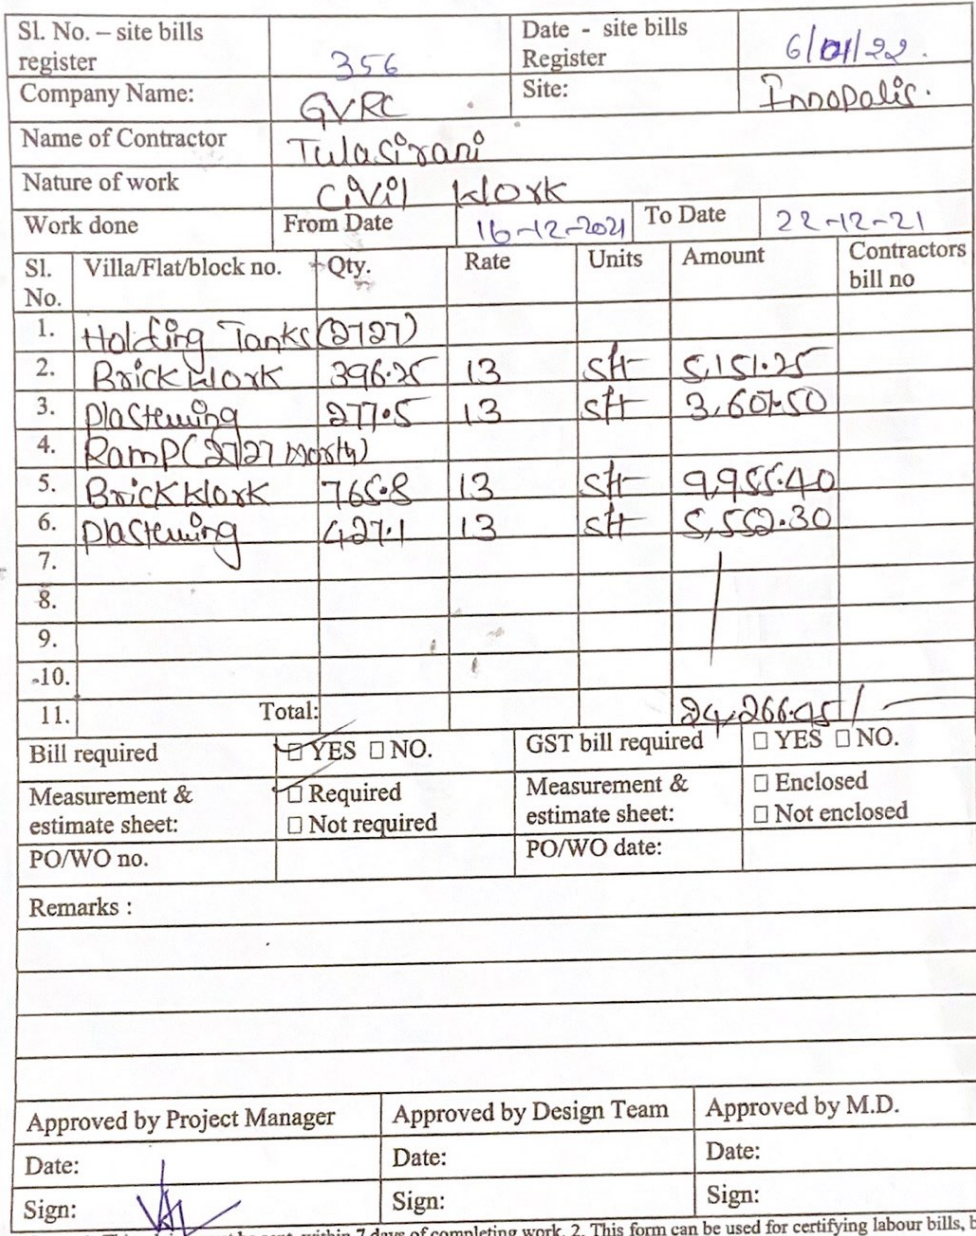 Sl. No. – site bills register 356 Date - site bills Register 6/01/22.
Company Name: GVRC Site: Innopolis.
Name of Contractor Tulasirani
Nature of work Civil Work
Work done From Date 16-12-2021 To Date 22-12-21
Sl. No. Villa/Flat/block no. Qty. Rate Units Amount Contractors bill no
1. Holding Tanks (2727)
2. Brick Work 396.25 13 sft 5,151.25
3. Plastering 277.5 13 sft 3,607.50
4. Ramp (2727 North)
5. Brick Work 765.8 13 sft 9,955.40
6. Plastering 427.1 13 sft 5,552.30
7.
8.
9.
10.
11. Total: 24,266.45/-
Bill required ☐ YES ☐ NO. GST bill required ☐ YES ☐ NO.
Measurement & estimate sheet: ☐ Required ☐ Not required Measurement & estimate sheet: ☐ Enclosed ☐ Not enclosed
PO/WO no. PO/WO date:
Remarks :
Approved by Project Manager Approved by Design Team Approved by M.D.
Date: Date: Date:
Sign: Sign: Sign:
within 7 days of completing work. 2. This form can be used for certifying labour bills, b